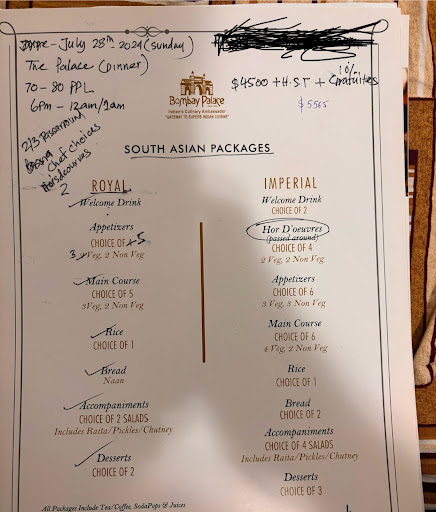 July 28th 2024 (Sunday)
The Palace (Dinner)
70 - 80 PPL
6pm - 12am/1am
$4500 + H.ST + 10%
$5565
2/3 Passaround
Chef choices
Horsdeourvas
2
Bombay Palace
Indian's Culinary Ambassador
"GATEWAY TO SUPERB INDIAN CUISINE"
SOUTH ASIAN PACKAGES
ROYAL
Welcome Drink
Appetizers
CHOICE OF 5
3 Veg, 2 Non Veg
Main Course
CHOICE OF 5
3 Veg, 2 Non Veg
Rice
CHOICE OF 1
Bread
Naan
Accompaniments
CHOICE OF 2 SALADS
Includes Raita/Pickles/Chutney
Desserts
CHOICE OF 2
IMPERIAL
Welcome Drink
CHOICE OF 2
Hor D'oeuvres
(passed around)
CHOICE OF 4
2 Veg, 2 Non Veg
Appetizers
CHOICE OF 6
3 Veg, 3 Non Veg
Main Course
CHOICE OF 6
4 Veg, 2 Non Veg
Rice
CHOICE OF 1
Bread
CHOICE OF 2
Accompaniments
CHOICE OF 4 SALADS
Includes Raita/Pickles/Chutney
Desserts
CHOICE OF 3
All Packages Include Tea/Coffee, SodaPops & Juices